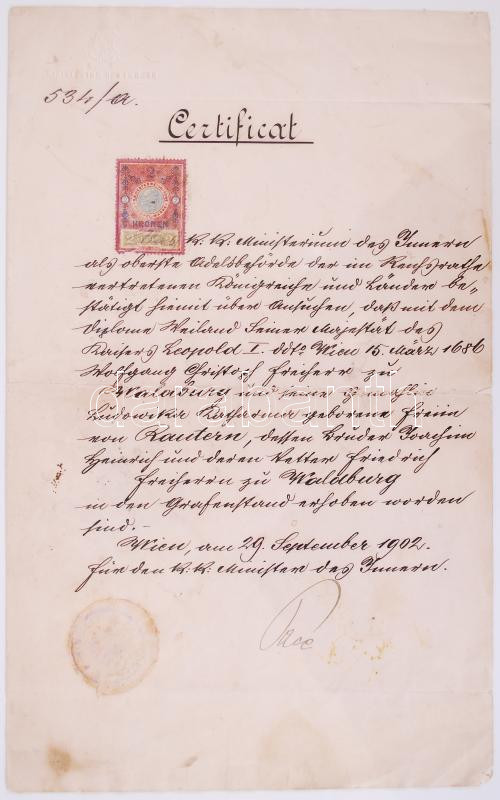 534/a.
Certificat
2
KRONEN
K. K. Ministerium des Innern
als oberste Adelsbehörde der im Reichsrathe
vertretenen Königreiche und Länder be„
stätigt hiemit über Ansuchen, daß mit dem
Diplome Weiland Seiner Majestät des
Kaisers Leopold I. ddto Wien 15. März 1686
Wolfgang Christoph Freiherr zu
Waldburg und seine Gemahlin
Ludowika Katharina geborene Freiin
von Rautern, dessen Bruder Joachim
Heinrich und deren Vetter Friedrich
Freiherrn zu Waldburg
in den Grafenstand erhoben worden
sind.-
Wien, am 29. September 1902.
Für den K. K. Minister des Innern.
darabanth